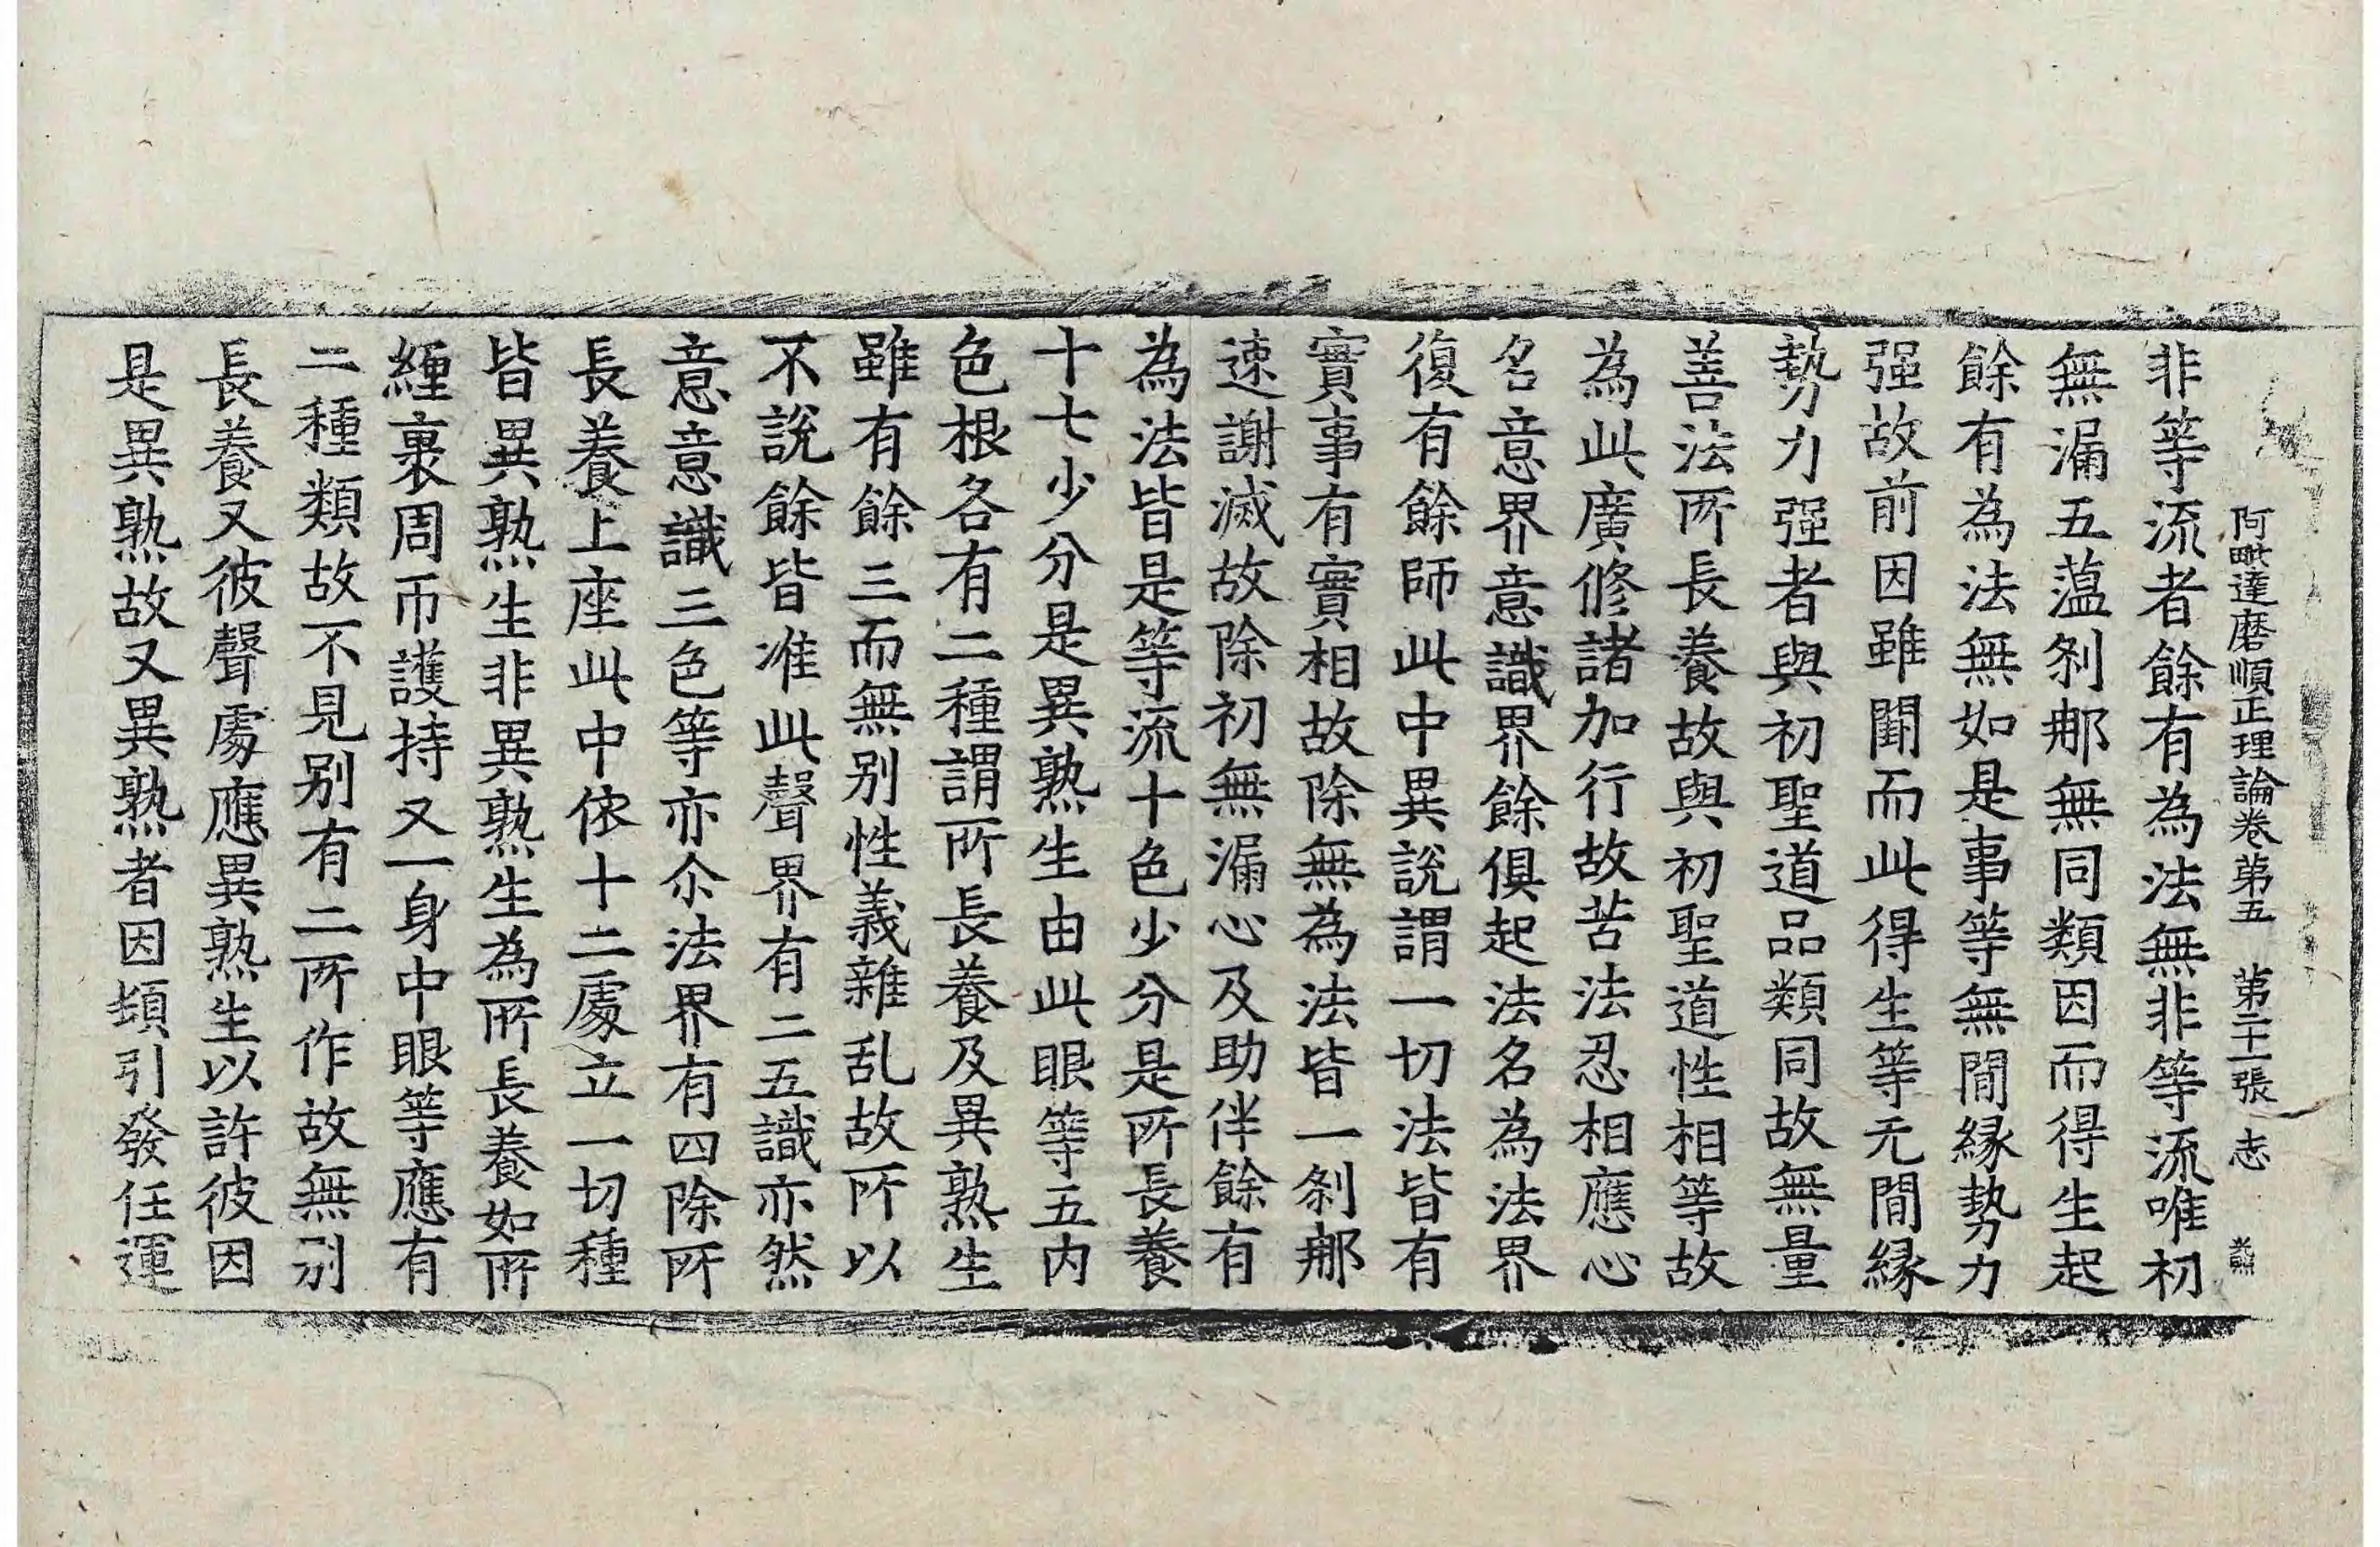 阿毗達磨順正理論卷第五 第二十一張 志
非等流者餘有為法無非等流唯初
無漏五蕰刹那無同類因而得生起
餘有為法無如是事等無間縁勢力
强故前因雖闕而此得生等无間縁
勢力强者與初聖道品類同故無量
善法所長養故與初聖道性相等故
為此廣修諸加行故苦法忍相應心
名意界意識界餘俱起法名為法界
復有餘師此中異說謂一切法皆有
實事有實相故除無為法皆一刹那
速謝滅故除初無漏心及助伴餘有
為法皆是等流十色少分是所長養
十七少分是異熟生由此眼等五内
色根各有二種謂所長養及異熟生
雖有餘三而無别性義雜乱故所以
不說餘皆准此聲界有二五識亦然
意意識三色等亦尒法界有四除所
長養上座此中依十二處立一切種
皆異熟生非異熟生為所長養如所
纏裹周帀護持又一身中眼等應有
二種類故不見别有二所作故無别
長養又彼聲處應異熟生以許彼因
是異熟故又異熟者因頓引發任運